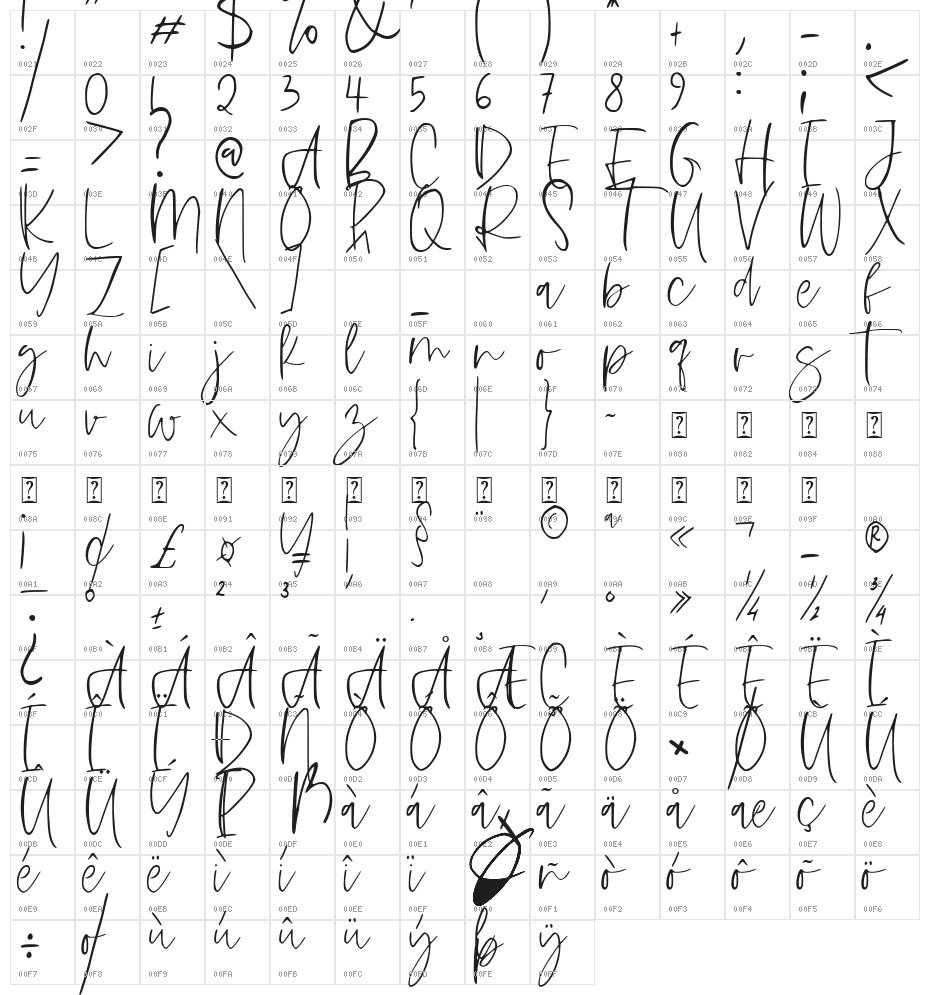 ! # $ % & ( ) * + , - .
0021 0022 0023 0024 0025 0026 0027 0028 0029 002A 002B 002C 002D 002E
/ 0 1 2 3 4 5 6 7 8 9 : ; <
002F 0030 0031 0032 0033 0034 0035 0036 0037 0038 0039 003A 003B 003C
= > ? @ A B C D E F G H I J
003D 003E 003F 0040 0041 0042 0043 0044 0045 0046 0047 0048 0049 004A
K L M N O P Q R S T U V W X
004B 004C 004D 004E 004F 0050 0051 0052 0053 0054 0055 0056 0057 0058
Y Z [ \ ] _ a b c d e f
0059 005A 005B 005C 005D 005E 005F 0060 0061 0062 0063 0064 0065 0066
g h i j k l m n o p q r s t
0067 0068 0069 006A 006B 006C 006D 006E 006F 0070 0071 0072 0073 0074
u v w x y z { | } ~ ? ? ? ?
0075 0076 0077 0078 0079 007A 007B 007C 007D 007E 0080 0082 0084 0088
? ? ? ? ? ? ? ? ? ? ? ? ?
008A 008C 008E 0091 0092 0093 0094 0098 0099 009A 009C 009E 009F 00A0
¡ ¢ £ ¤ ¥ ¦ § ¨ © ª « ¬ - ®
00A1 00A2 00A3 00A4 00A5 00A6 00A7 00A8 00A9 00AA 00AB 00AC 00AD 00AE
¯ ° ± ² ³ ´ · ¸ ¹ º » ¼ ½ ¾
00AF 00B0 00B1 00B2 00B3 00B4 00B7 00B8 00B9 00BA 00BB 00BC 00BD 00BE
¿ À Á Â Ã Ä Å Æ Ç È É Ê Ë Ì
00BF 00C0 00C1 00C2 00C3 00C4 00C5 00C6 00C7 00C8 00C9 00CA 00CB 00CC
Í Î Ï Ð Ñ Ò Ó Ô Õ Ö × Ø Ù Ú
00CD 00CE 00CF 00D0 00D1 00D2 00D3 00D4 00D5 00D6 00D7 00D8 00D9 00DA
Û Ü Ý Þ ß à á â ã ä å æ ç è
00DB 00DC 00DD 00DE 00DF 00E0 00E1 00E2 00E3 00E4 00E5 00E6 00E7 00E8
é ê ë ì í î ï ð ñ ò ó ô õ ö
00E9 00EA 00EB 00EC 00ED 00EE 00EF 00F0 00F1 00F2 00F3 00F4 00F5 00F6
÷ ø ù ú û ü ý þ ÿ
00F7 00F8 00F9 00FA 00FB 00FC 00FD 00FE 00FF